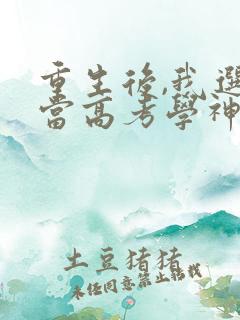 重生後,我選
當高考學神
土豆猪猪
未经同意禁止转载